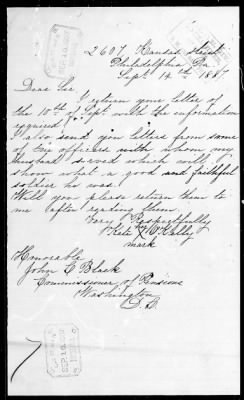 2607 Kansas street
Philadelphia Pa
Sept 14th 1887
Dear Sir
I return your letter of
the 10th of Sept with the information
required
I also send you letters from some
of the officers with whom my
husband served which will
show what a good and faithful
soldier he was.
Will you please return them to
me after reading them.
Very Respectfully
Kate X O'Kelly
mark
Honorable
John C Black
Commissioner of Pensions
Washington
D.C.